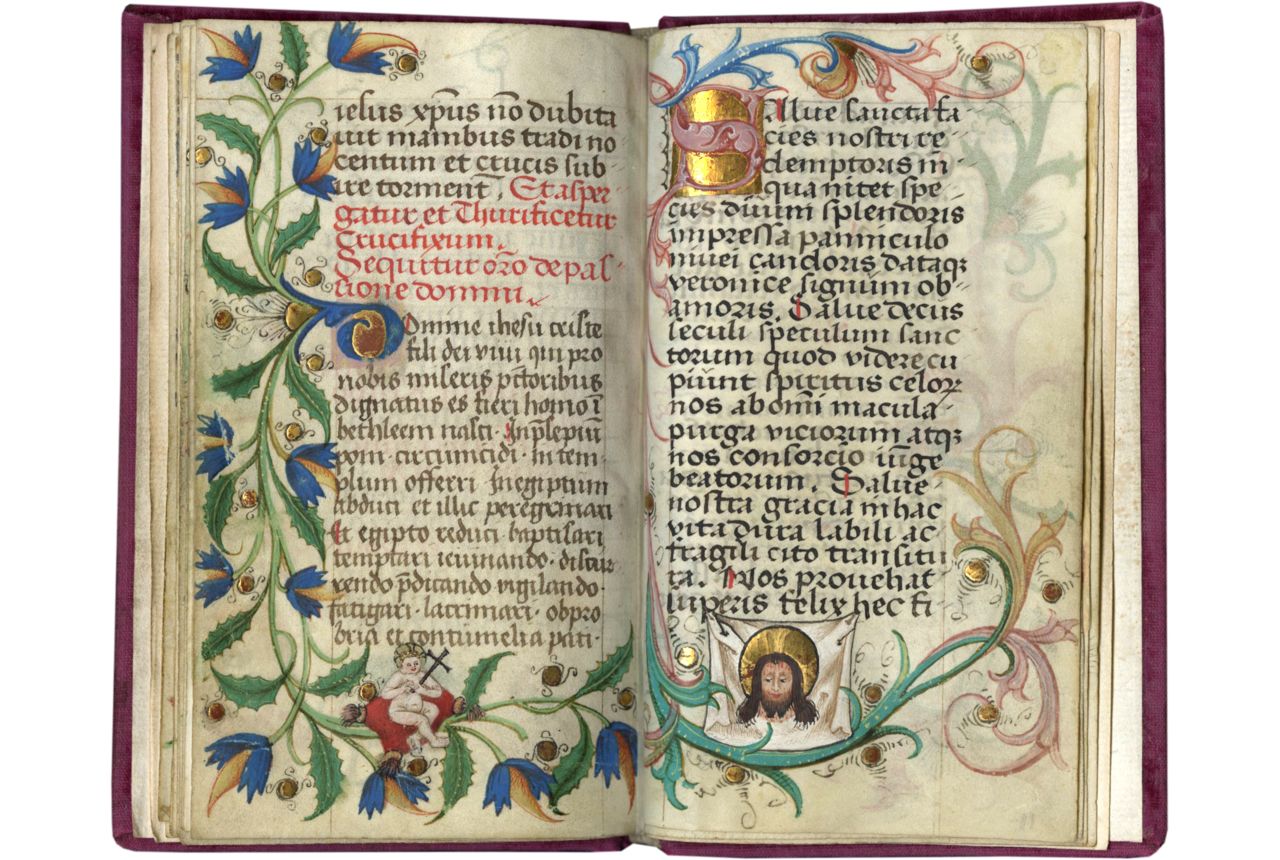 iesus xp̄us nō dubita
uit manibus tradi no
centum et crucis sub
ire torment̄. Et asper
gatur et Thurificetur
Crucifixum.
Sequitur orō de pas
sione domini.
Domine ihesu criste
fili dei viui qui pro
nobis miseris pctoribus
dignatus es fieri homo ī
bethleem nasci. In p̄sepiū
poni. circumcidi. In tem
plum offerri Inegiptum
abduci et illic peregrinari
Et egipto reduci baptisari
temptari ieiunando. discur
rendo p̄dicando vigilando.
fatigari. lacrimari. obpro
bria et contumelia pati.
Salue sancta fa
cies nostri re
demptoris in
qua nitet spe
cies diuini splendoris
impressa panniculo
niuei candoris dataqꝫ
veronice signum ob
amoris. Salue decus
seculi speculum sanc
torum quod videre cu
piunt spiritus celoꝝ
nos ab omī macula
purga viciorum atqꝫ
nos consorcio iūge
beatorum. Salue
nostra gracia in hac
vita dura labili ac
fragili cito transitu
ra. Nos prouehat
superis felix hec fi